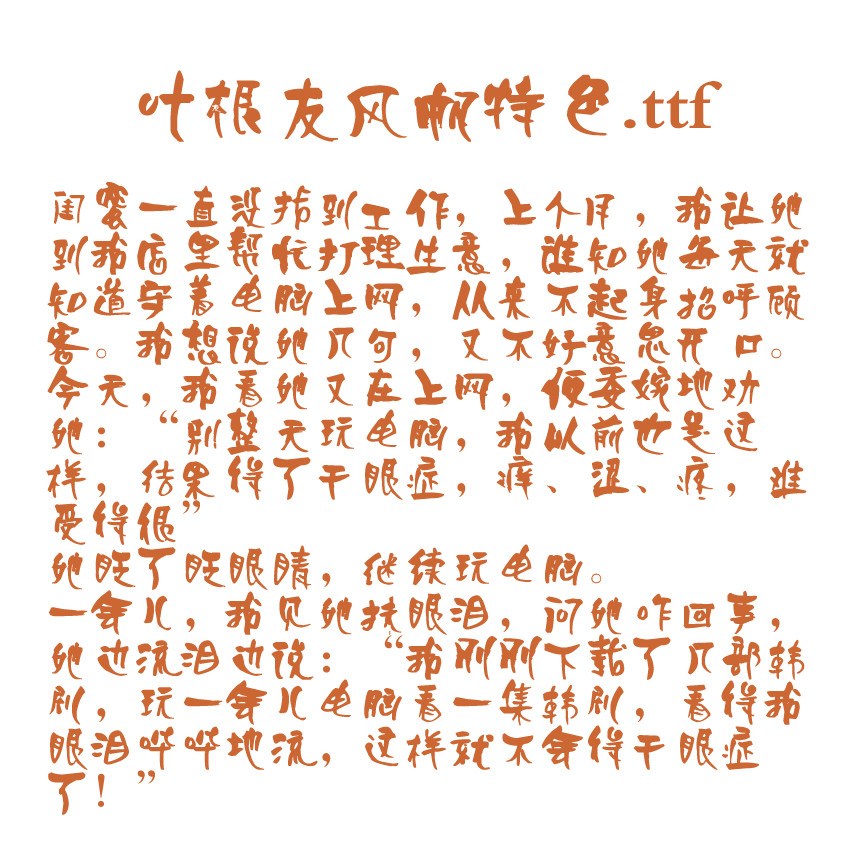 叶根友风帆特色.ttf
闺蜜一直没找到工作，上个月，我让她
到我店里帮忙打理生意，谁知她每天就
知道守着电脑上网，从来不起身招呼顾
客。我想说她几句，又不好意思开口。
今天，我看她又在上网，便委婉地劝
她：“别整天玩电脑，我以前也是这
样，结果得了干眼症，痒、涩、疼，难
受得很”
她眨了眨眼睛，继续玩电脑。
一会儿，我见她抹眼泪，问她咋回事，
她边流泪边说：“我刚刚下载了几部韩
剧，玩一会儿电脑看一集韩剧，看得我
眼泪哗哗地流，这样就不会得干眼症
了！”